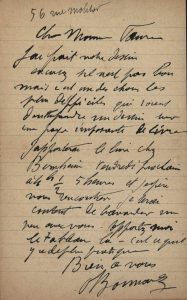 56 rue Molitor
Cher Monsieur
J'ai fait votre dessin
excusez s'il n'est pas bon
mais c'est une des choses les
plus difficiles qui soient
d'entreprendre un dessin sur
une page imposante de livre
J'apporterai le livre chez
Bernheim vendredi prochain
à 4 h ½ 5 heures et j'espère
vous rencontrer je serai
content de bavarder un
peu avec vous. Apportez moi
le tableau là - c'est ce qu'il
y a de plus pratique
Bien à vous
Bonnard